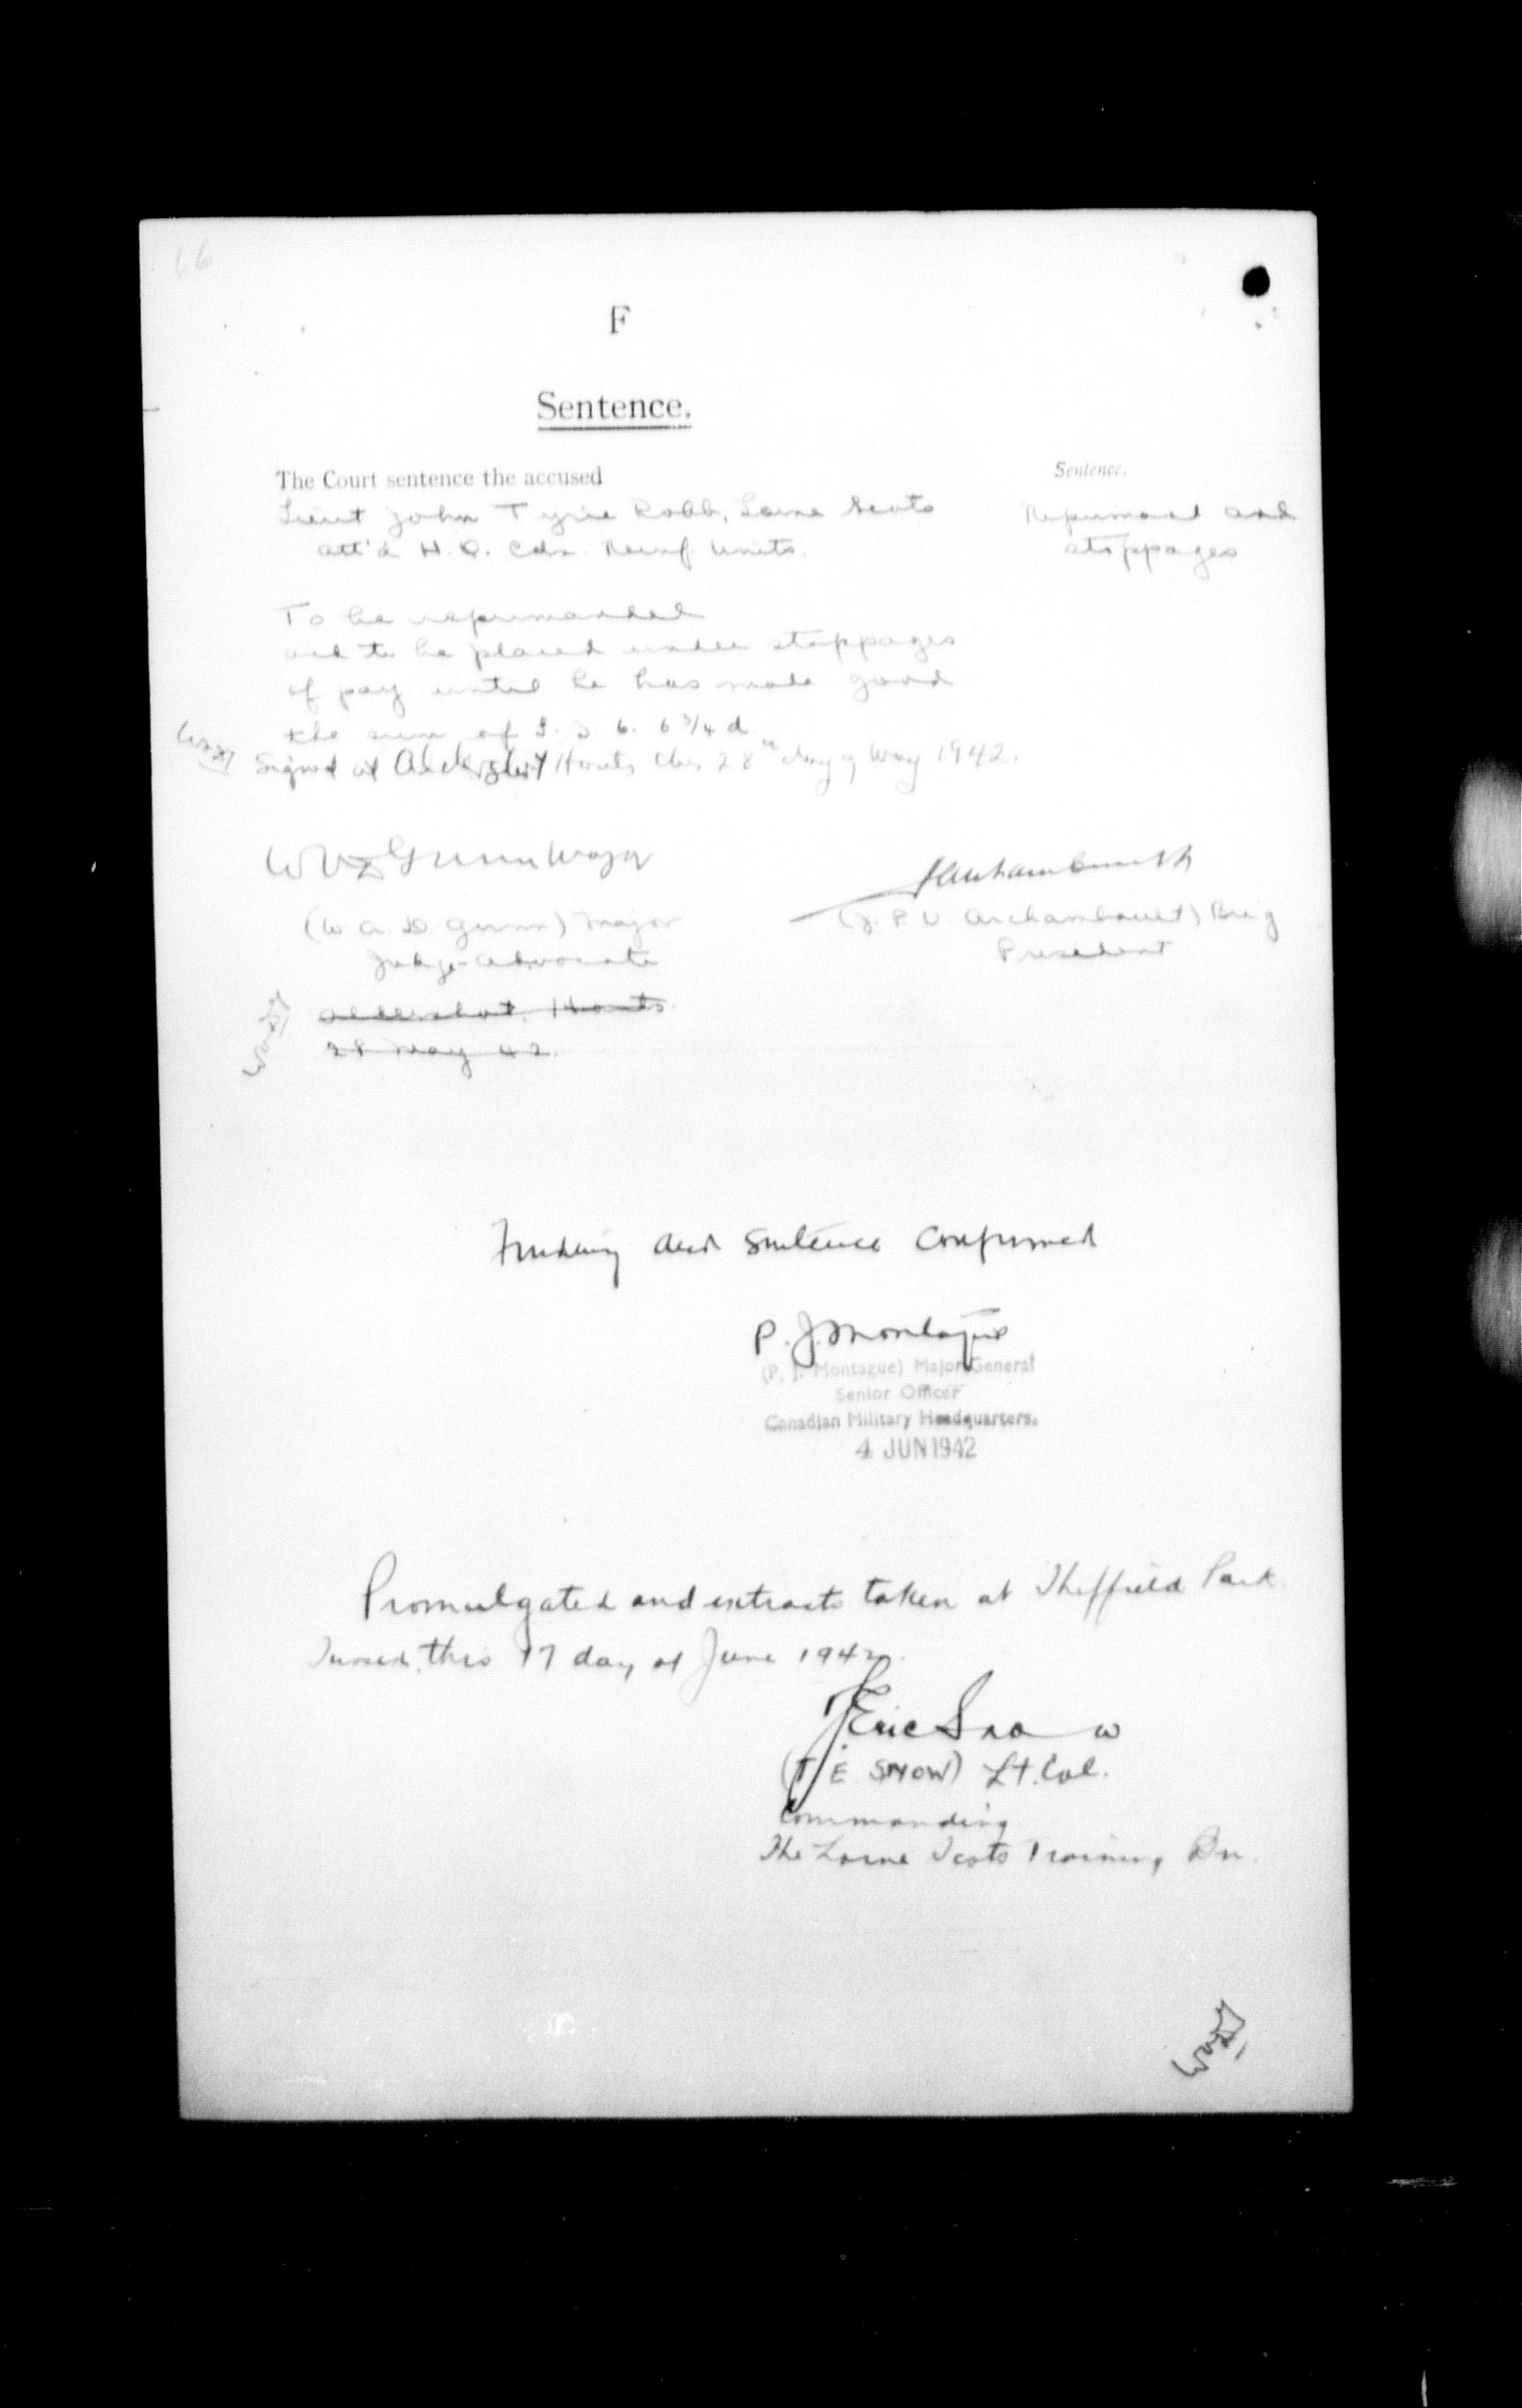 66
F
Sentence.
The Court sentence the accused
Sentence.
Lieut John Tyrie Robb, Lorne Scots
Reprimand and
att'd H.Q. Cdn. Reinf. Units.
stoppages
To be reprimanded
and to be placed under stoppages
of pay until he has made good
the sum of 6. 6 3/4 d
Signed at Aldershot Hants this 28th day of May 1942.
Gunn Major
(W. G. Gunn) Major
(J. P. U. Archambault) Brig
Judge-Advocate
President
Aldershot, Hants
28 May 42.
Finding and Sentence Confirmed
P. J. Montague
(P. J. Montague) Major General
Senior Officer
Canadian Military Headquarters.
4 JUN 1942
Promulgated and extracts taken at Sheffield Park
Sussex, this 17 day of June 1942.
T Eric Snow
(T. E. SNOW) Lt. Col.
Commanding
The Lorne Scots Training Bn.